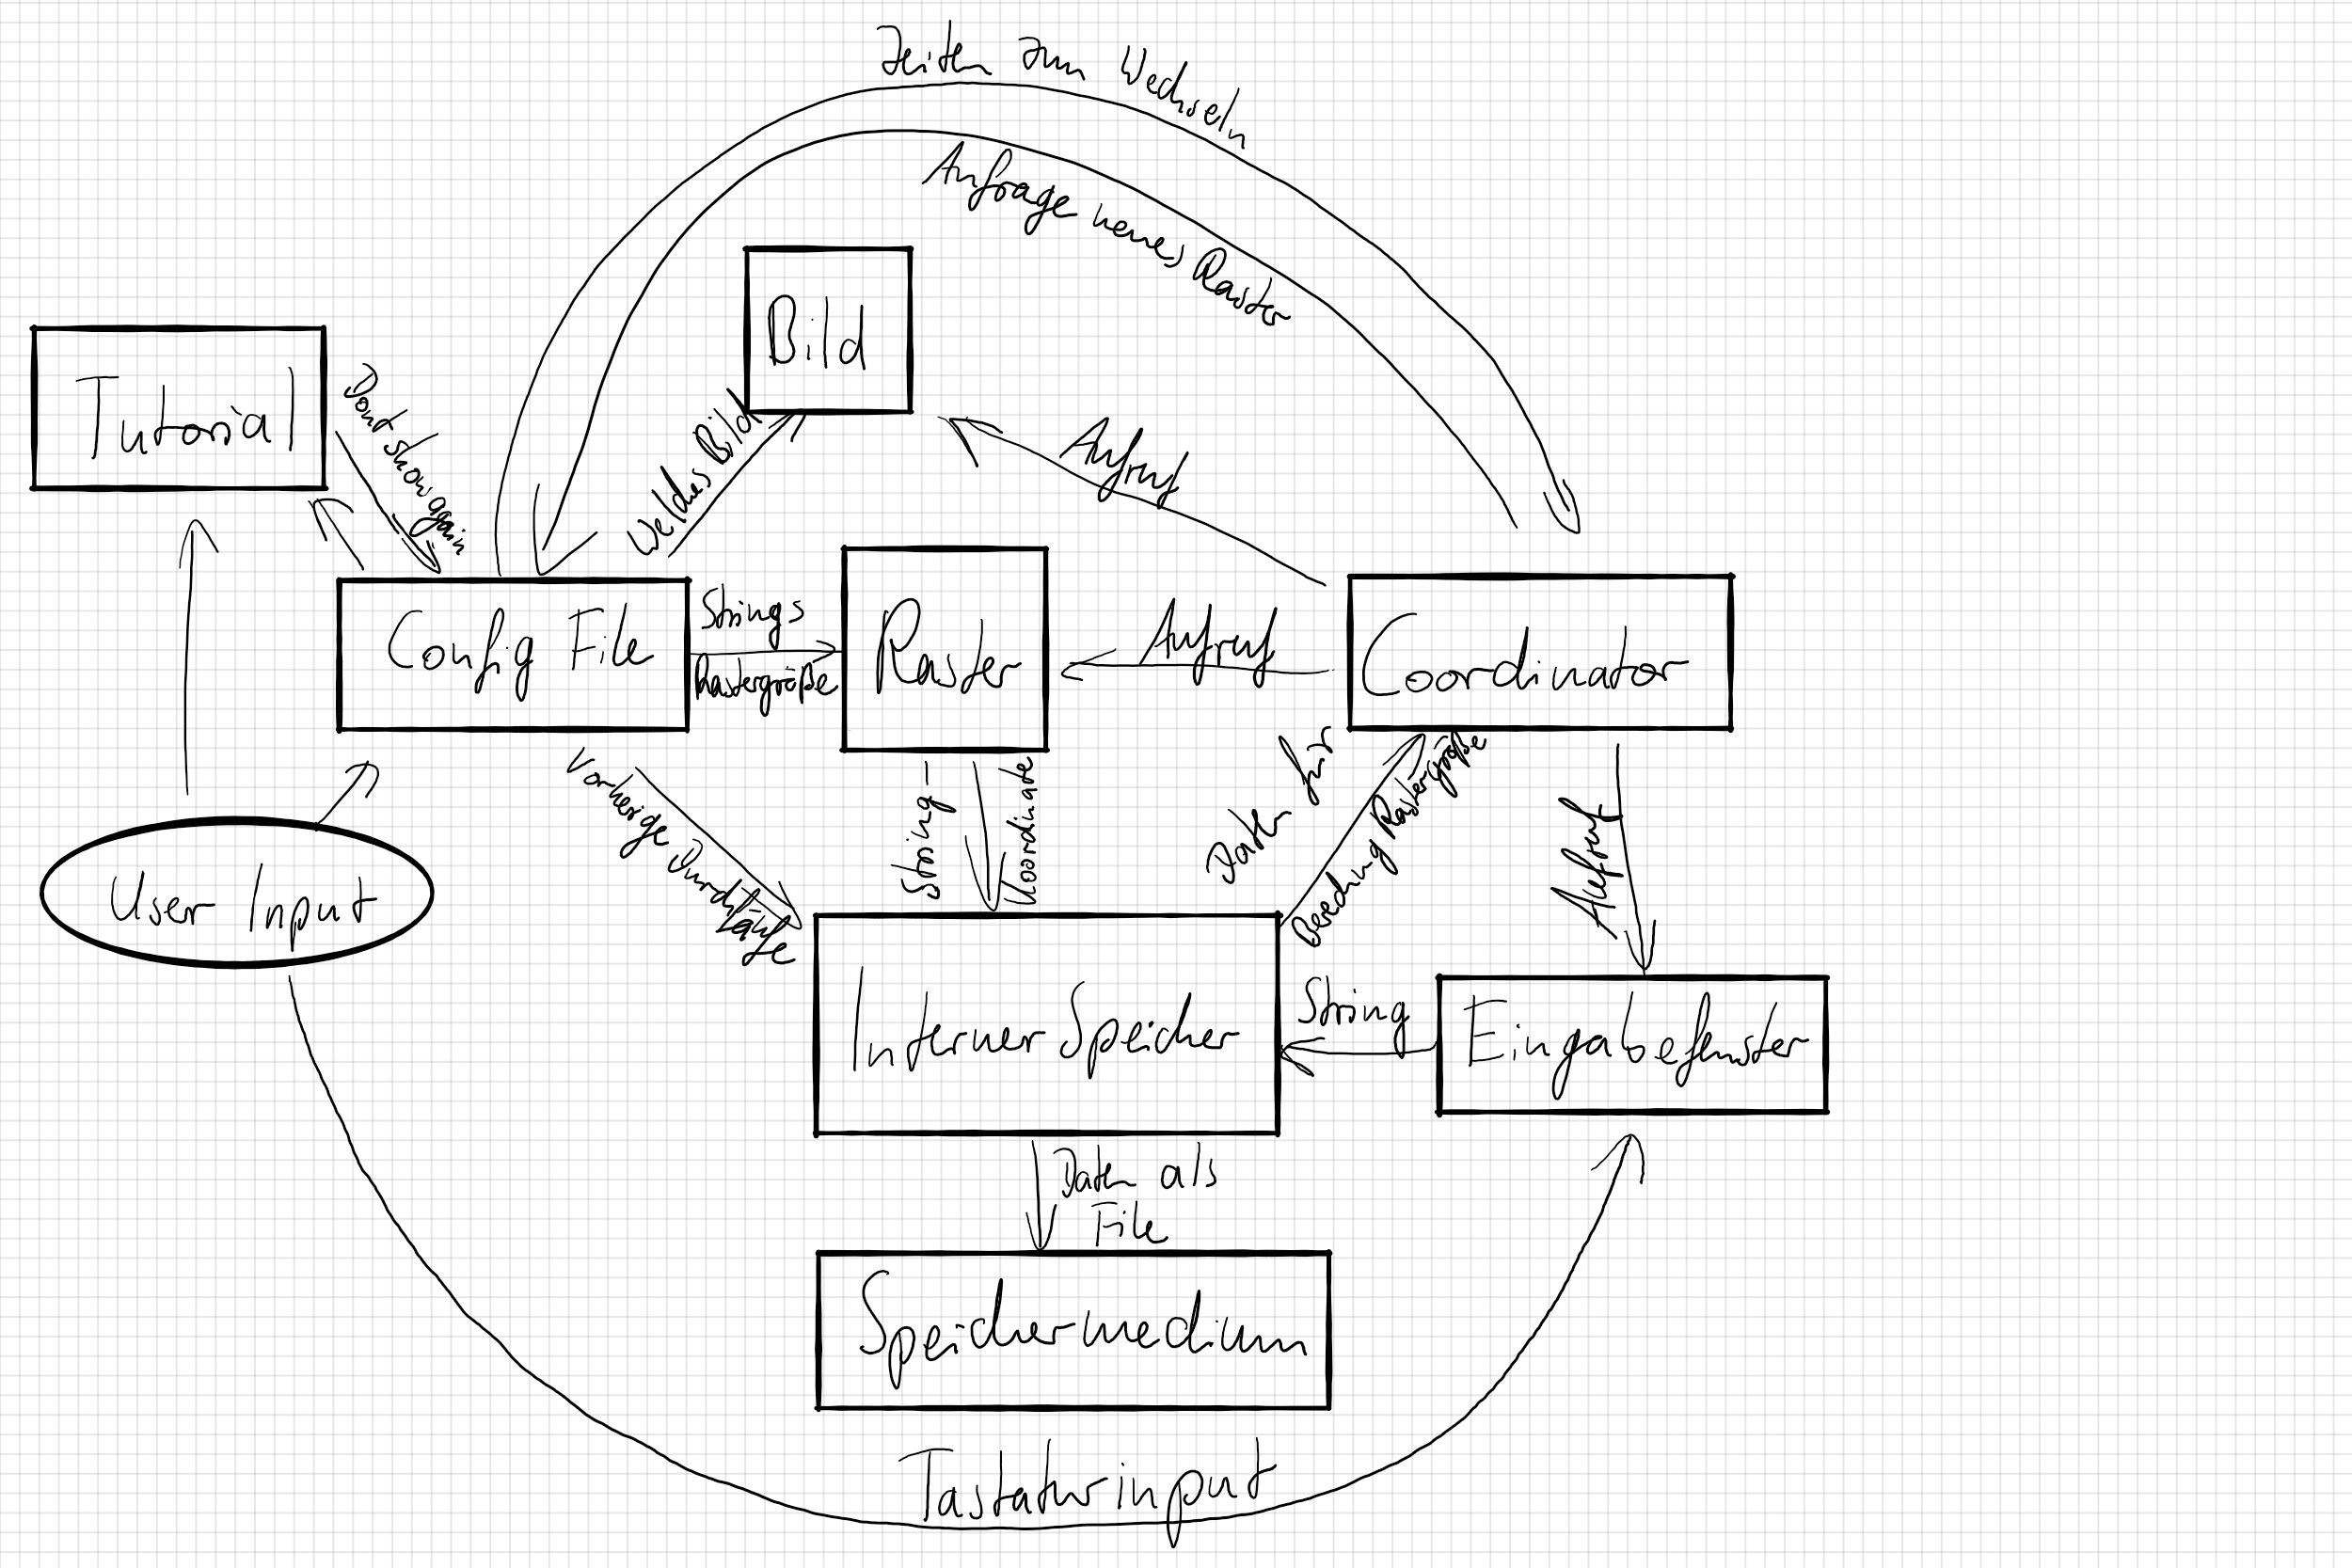 Zeiten zum Wechseln
Anfrage neues Raster
Bild
Tutorial
Dont show again
Welches Bild
Aufruf
Config File
Strings
Rastergröße
Raster
Aufruf
Coordinator
Vorherige Durch-
läufe
String-
Koordinate
Daten für
Berechnung Rastergröße
Aufruf
User Input
Interner Speicher
String
Eingabefenster
Daten als
File
Speichermedium
Tastaturinput